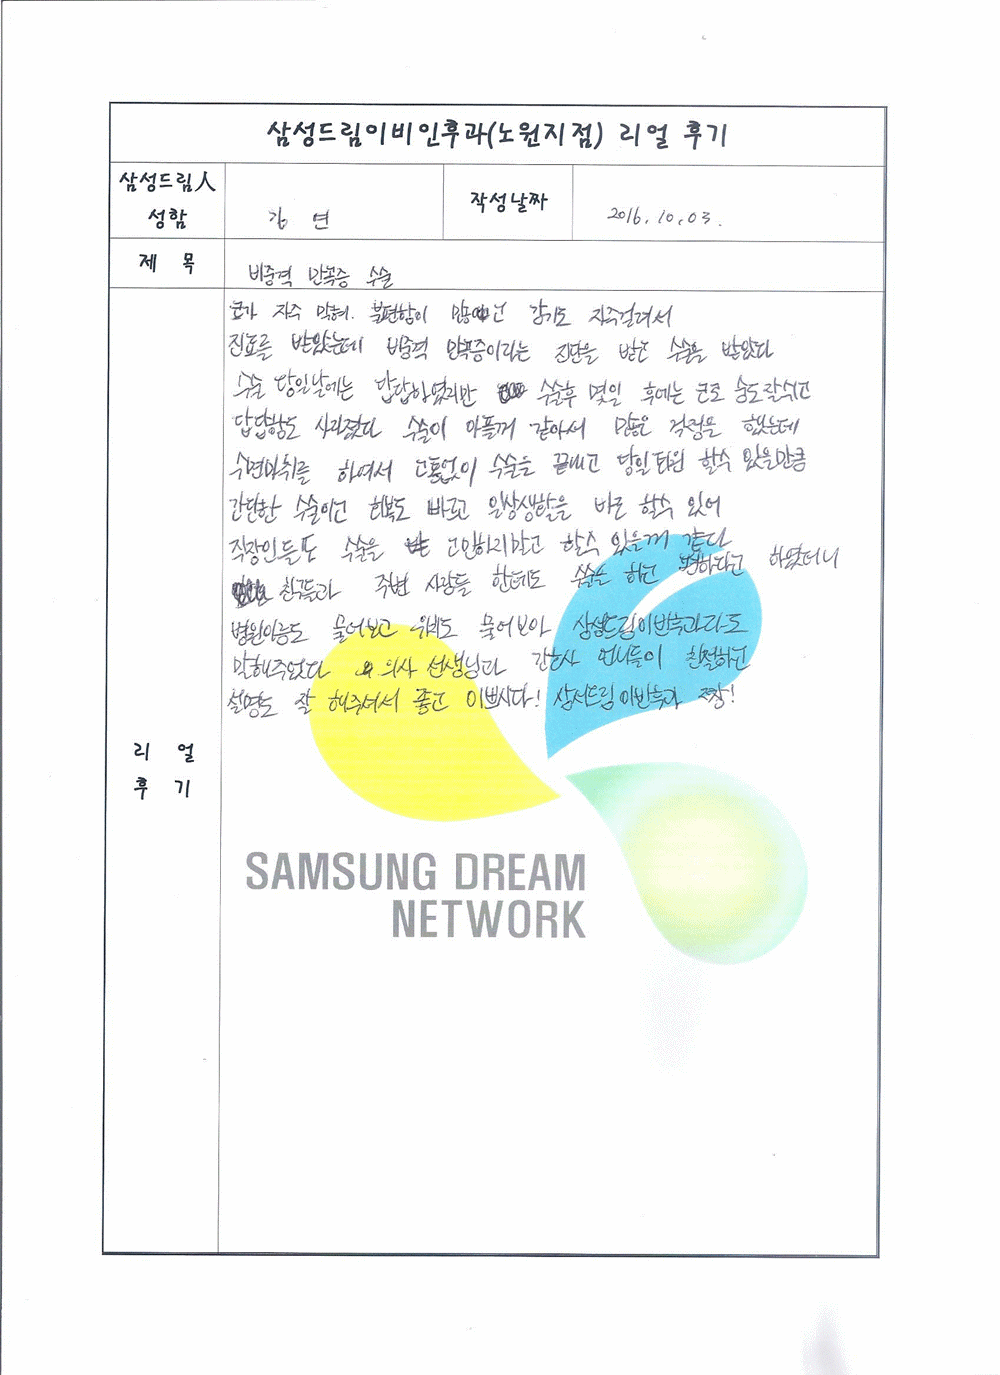 삼성드림이비인후과(노원지점) 리얼 후기
삼성드림人
성함
김 연
작성날짜
2016. 10. 03.
제 목
비중격 만곡증 수술
코가 자주 막혀. 불편함이 많았고 감기도 자주걸려서
진료를 받았는데 비중격 만곡증이라는 진단을 받은 수술을 받았다
수술 당일날에는 답답하였지만 수술후 몇일 후에는 코로 숨도 잘쉬고
답답함도 사라졌다 수술이 아플꺼 같아서 많은 걱정을 했는데
수면마취를 하여서 고통없이 수술을 끝내고 당일 퇴원 할수 있을만큼
간단한 수술이고 회복도 빠르고 일상생활을 바로 할수 있어
직장인들도 수술을 고민하지말고 할수 있을꺼 같다
친구들과 주변 사람들 한테도 수술을 하고 편하다고 하였더니
병원이름도 물어보고 위치도 물어보아 삼성드림이비인후과라고
말해주었다 의사 선생님과 간호사 언니들이 친절하고
설명도 잘 해주셔서 좋고 이쁘시다! 삼성드림이비인후과 짱!
리 얼
후 기
SAMSUNG DREAM
NETWORK